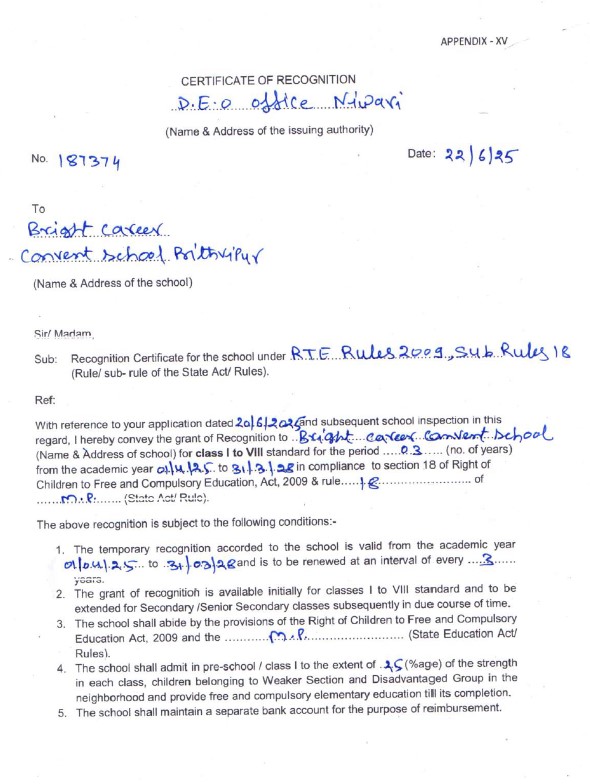 APPENDIX - XV
CERTIFICATE OF RECOGNITION
D.E.O office Niwari
(Name & Address of the issuing authority)
No. 187374
Date: 22/6/25
To
Bright Career
Convent School Prithvipur
(Name & Address of the school)
Sir/ Madam,
Sub: Recognition Certificate for the school under RTE Rules 2009, Sub Rules 18
(Rule/ sub- rule of the State Act/ Rules).
Ref:
With reference to your application dated 20/6/2025 and subsequent school inspection in this
regard, I hereby convey the grant of Recognition to ..Bright career Convent School
(Name & Address of school) for class I to VIII standard for the period .....03..... (no. of years)
from the academic year 01/4/25.. to 31/3/28 in compliance to section 18 of Right of
Children to Free and Compulsory Education, Act, 2009 & rule.....18............................. of
......M.P........ (State Act/ Rule).
The above recognition is subject to the following conditions:-
1. The temporary recognition accorded to the school is valid from the academic year
01/04/25... to 31/03/28 and is to be renewed at an interval of every ....3......
years.
2. The grant of recognition is available initially for classes I to VIII standard and to be
extended for Secondary /Senior Secondary classes subsequently in due course of time.
3. The school shall abide by the provisions of the Right of Children to Free and Compulsory
Education Act, 2009 and the ............M.P........................... (State Education Act/
Rules).
4. The school shall admit in pre-school / class I to the extent of .25 (%age) of the strength
in each class, children belonging to Weaker Section and Disadvantaged Group in the
neighborhood and provide free and compulsory elementary education till its completion.
5. The school shall maintain a separate bank account for the purpose of reimbursement.